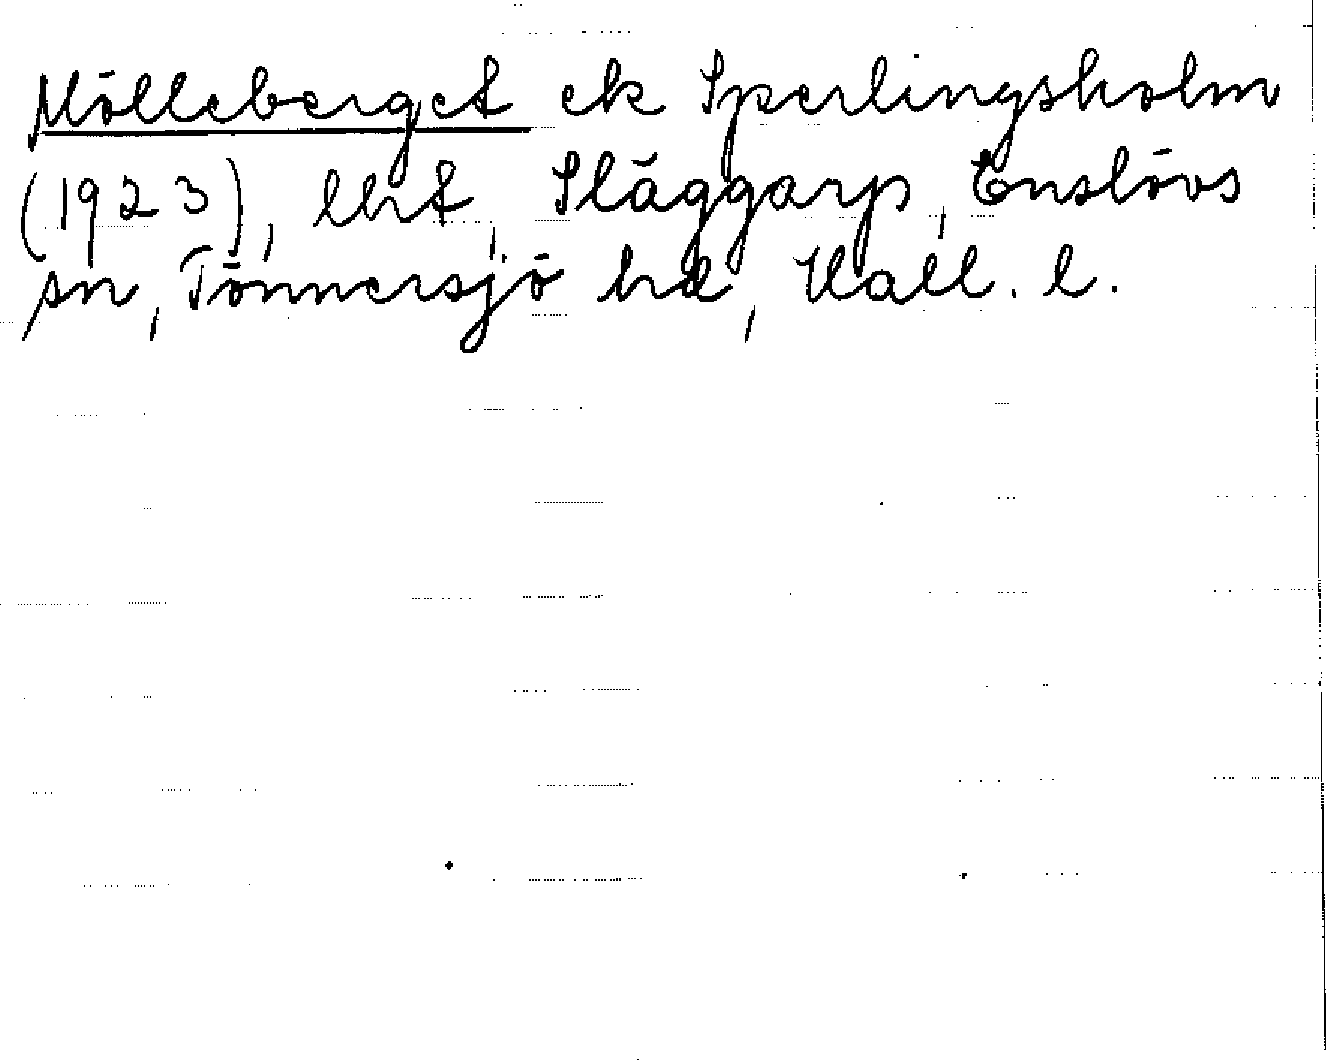 Mölleberget ek Sperlingsholm
(1923), lht, Släggarp, Enslövs
sn, Tönnersjö hd, Hall. l.